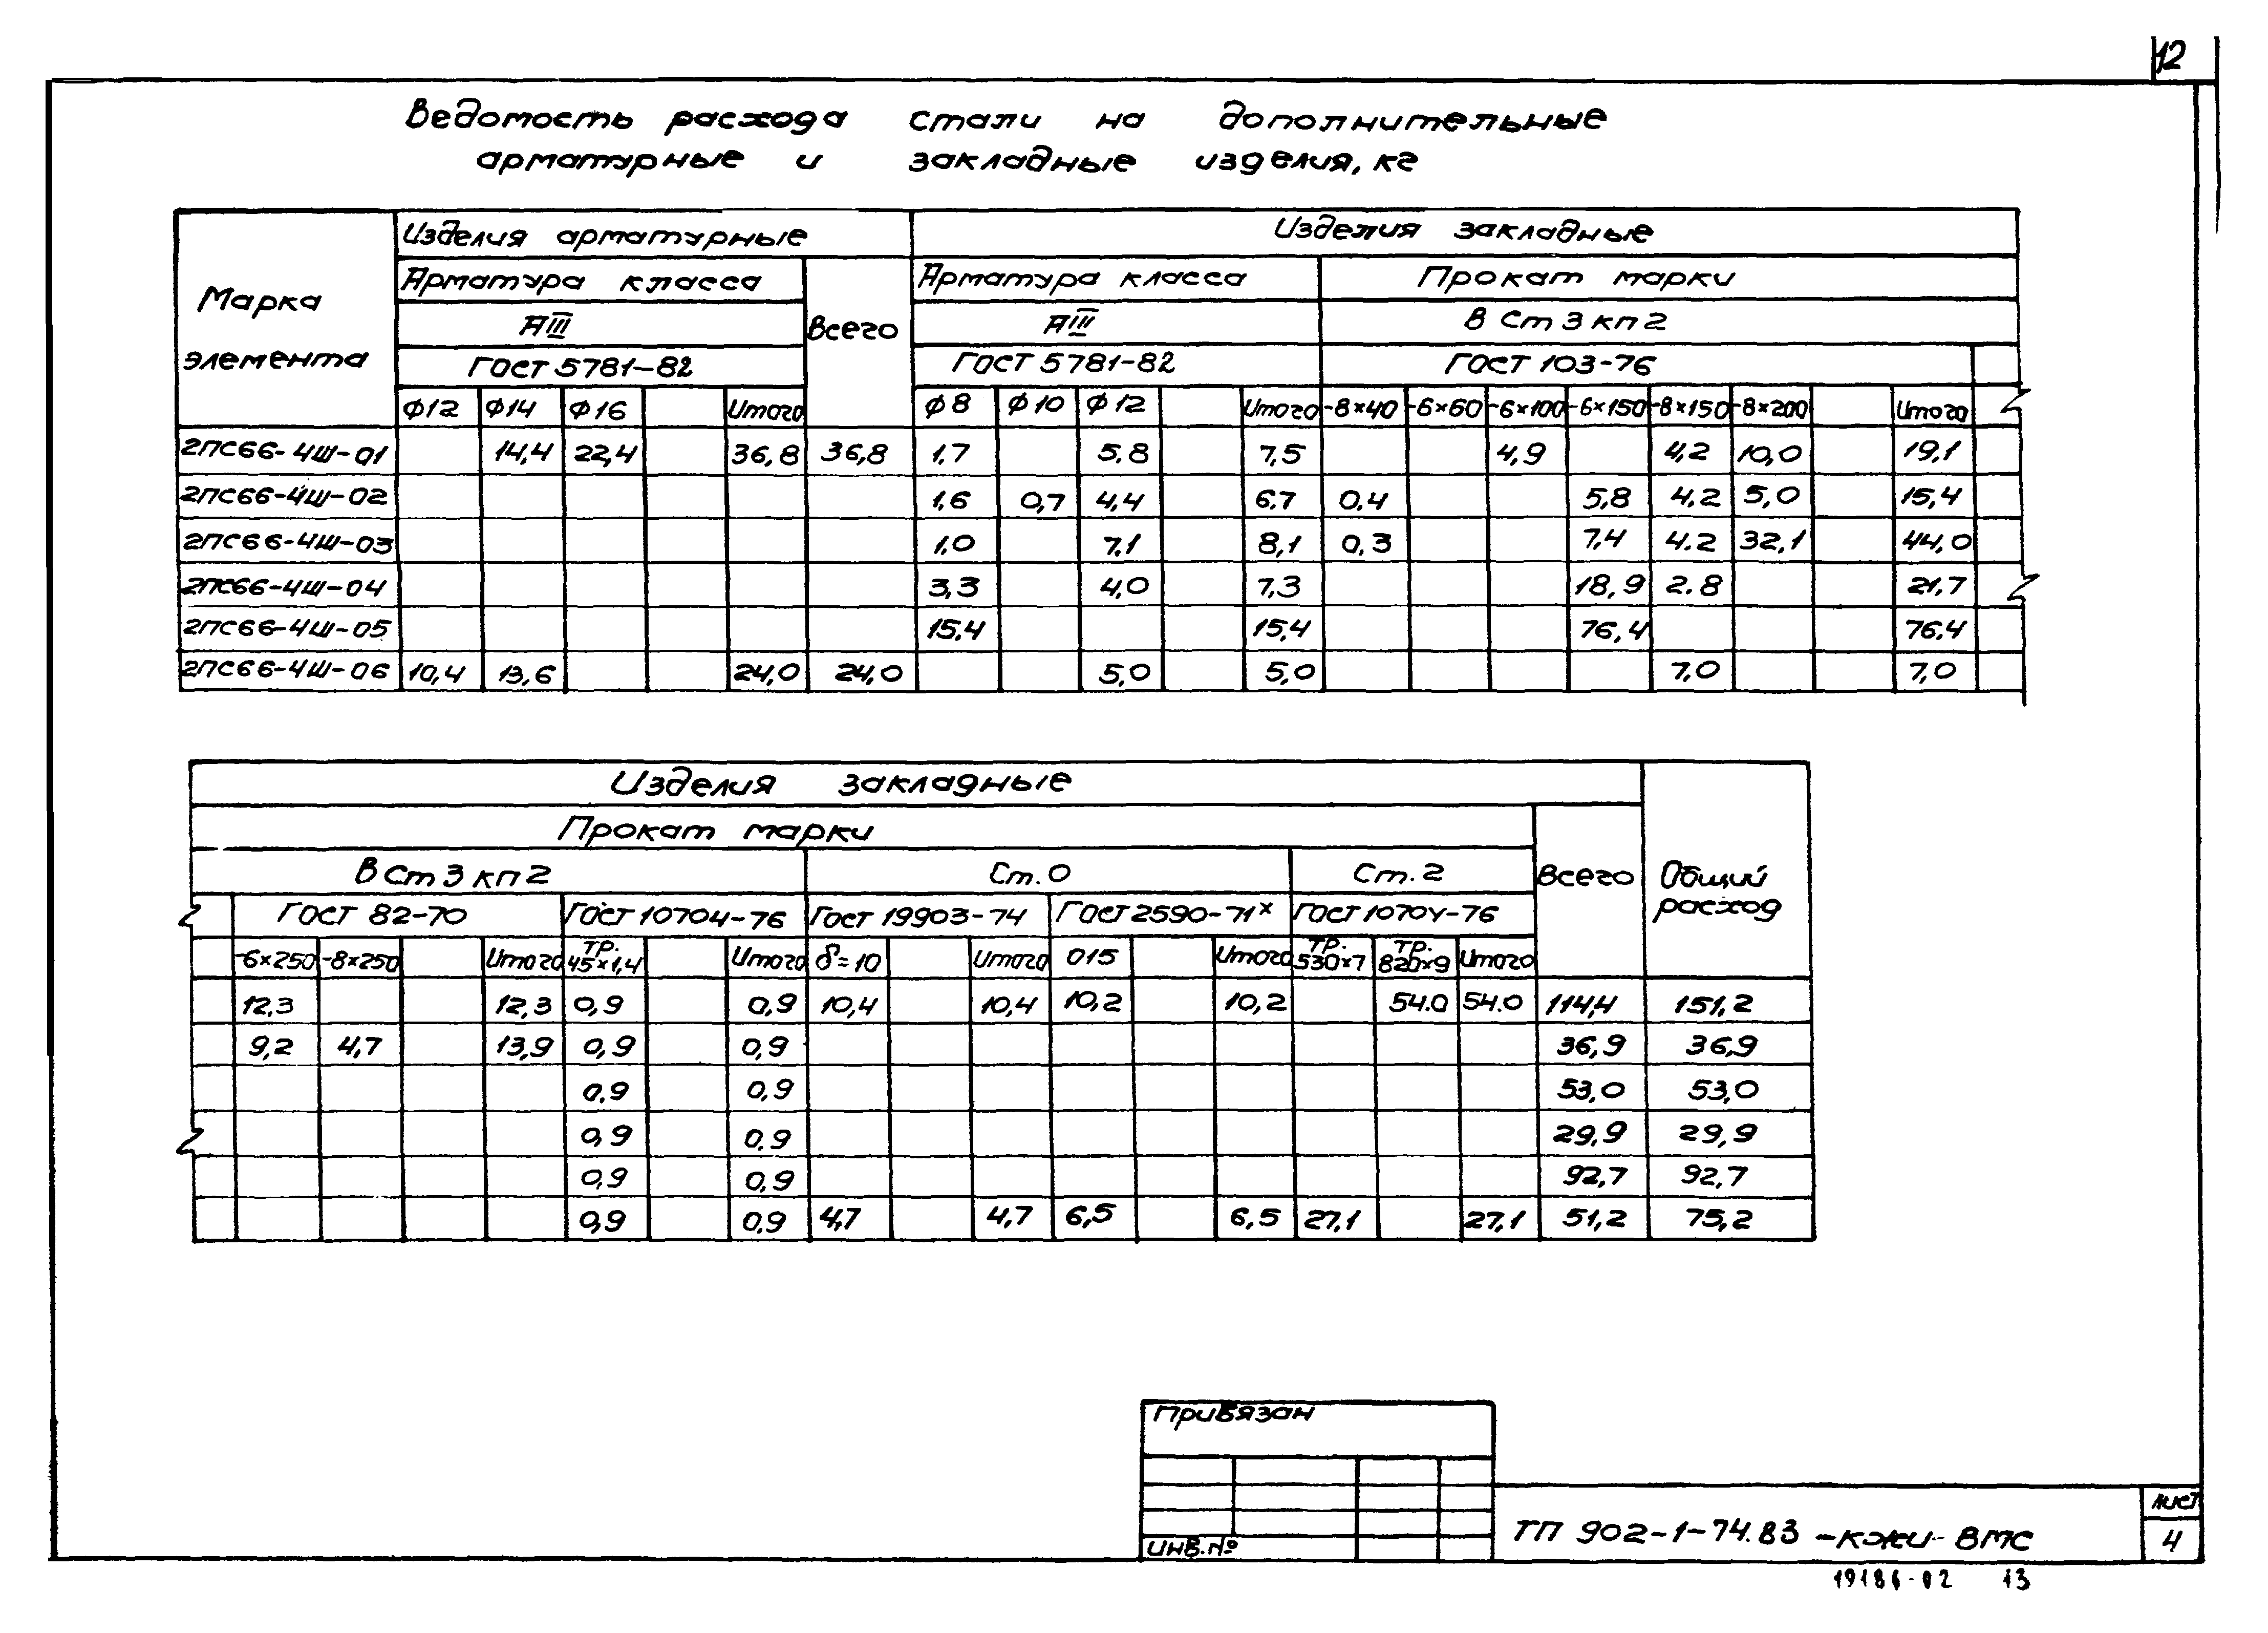 12
Ведомость расхода стали на дополнительные
арматурные и закладные изделия, кг
Марка элемента
Изделия арматурные Изделия закладные
Арматура класса Всего Арматура класса Прокат марки
АIII АIII В Ст 3 кп 2
ГОСТ 5781-82 ГОСТ 5781-82 ГОСТ 103-76
Ф12 Ф14 Ф16 Итого Ф8 Ф10 Ф12 Итого -8×40 -6×60 -6×100 -6×150 -8×150 -8×200 Итого
2ПС66-4Ш-01 14,4 22,4 36,8 36,8 1.7 5.8 7,5 4,9 4,2 10,0 19,1
2ПС66-4Ш-02 1,6 0,7 4,4 6.7 0,4 5,8 4.2 5,0 15,4
2ПС66-4Ш-03 1.0 7,1 8,1 0,3 7,4 4.2 32,1 44,0
2ПС66-4Ш-04 3,3 4,0 7.3 18,9 2.8 21,7
2ПС66-4Ш-05 15.4 15.4 76,4 76,4
2ПС66-4Ш-06 10,4 13,6 24,0 24,0 5,0 5,0 7.0 7,0
Изделия закладные
Прокат марки
В Ст 3 кп 2 Ст. 0 Ст. 2 Всего Общий расход
ГОСТ 82-70 ГОСТ 10704-76 ГОСТ 19903-74 ГОСТ 2590-71ˣ ГОСТ 10704-76
-6×250 -8×250 Итого ТР. 45×1,4 Итого δ=10 Итого О15 Итого ТР. 530×7 ТР. 820×9 Итого
12.3 12,3 0,9 0,9 10,4 10,4 10,2 10,2 54.0 54.0 114,4 151,2
9,2 4,7 13,9 0,9 0,9 36,9 36,9
0,9 0,9 53,0 53,0
0,9 0,9 29,9 29,9
0,9 0,9 92,7 92,7
0,9 0,9 4,7 4,7 6,5 6,5 27,1 27,1 51,2 75,2
Привязан
ИНВ.№
ТП 902-1-74.83 -КЖИ- ВМС
Лист
4
19186-02 13